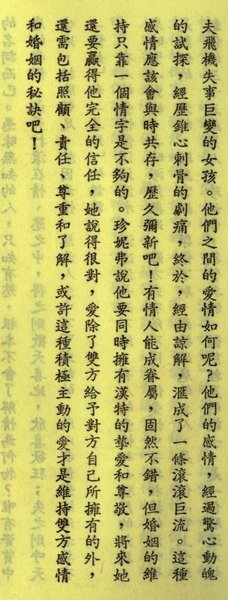 夫飛機失事巨變的女孩。他們之間的愛情如何呢?他們的感情,經過驚心動魄
的試探,經歷錐心刺骨的劇痛,終於,經由諒解,滙成了一條滾滾巨流。這種
感情應該會與時共存,歷久彌新吧!有情人能成眷屬,固然不錯,但婚姻的維
持只靠一個情字是不夠的。珍妮弗說他要同時擁有漢特的摯愛和尊敬,將來她
還要贏得他完全的信任,她說得很對,愛除了雙方給予對方自己所擁有的外,
還需包括照顧、責任、尊重和了解,或許這種積極主動的愛才是維持雙方感情
和婚姻的秘訣吧!